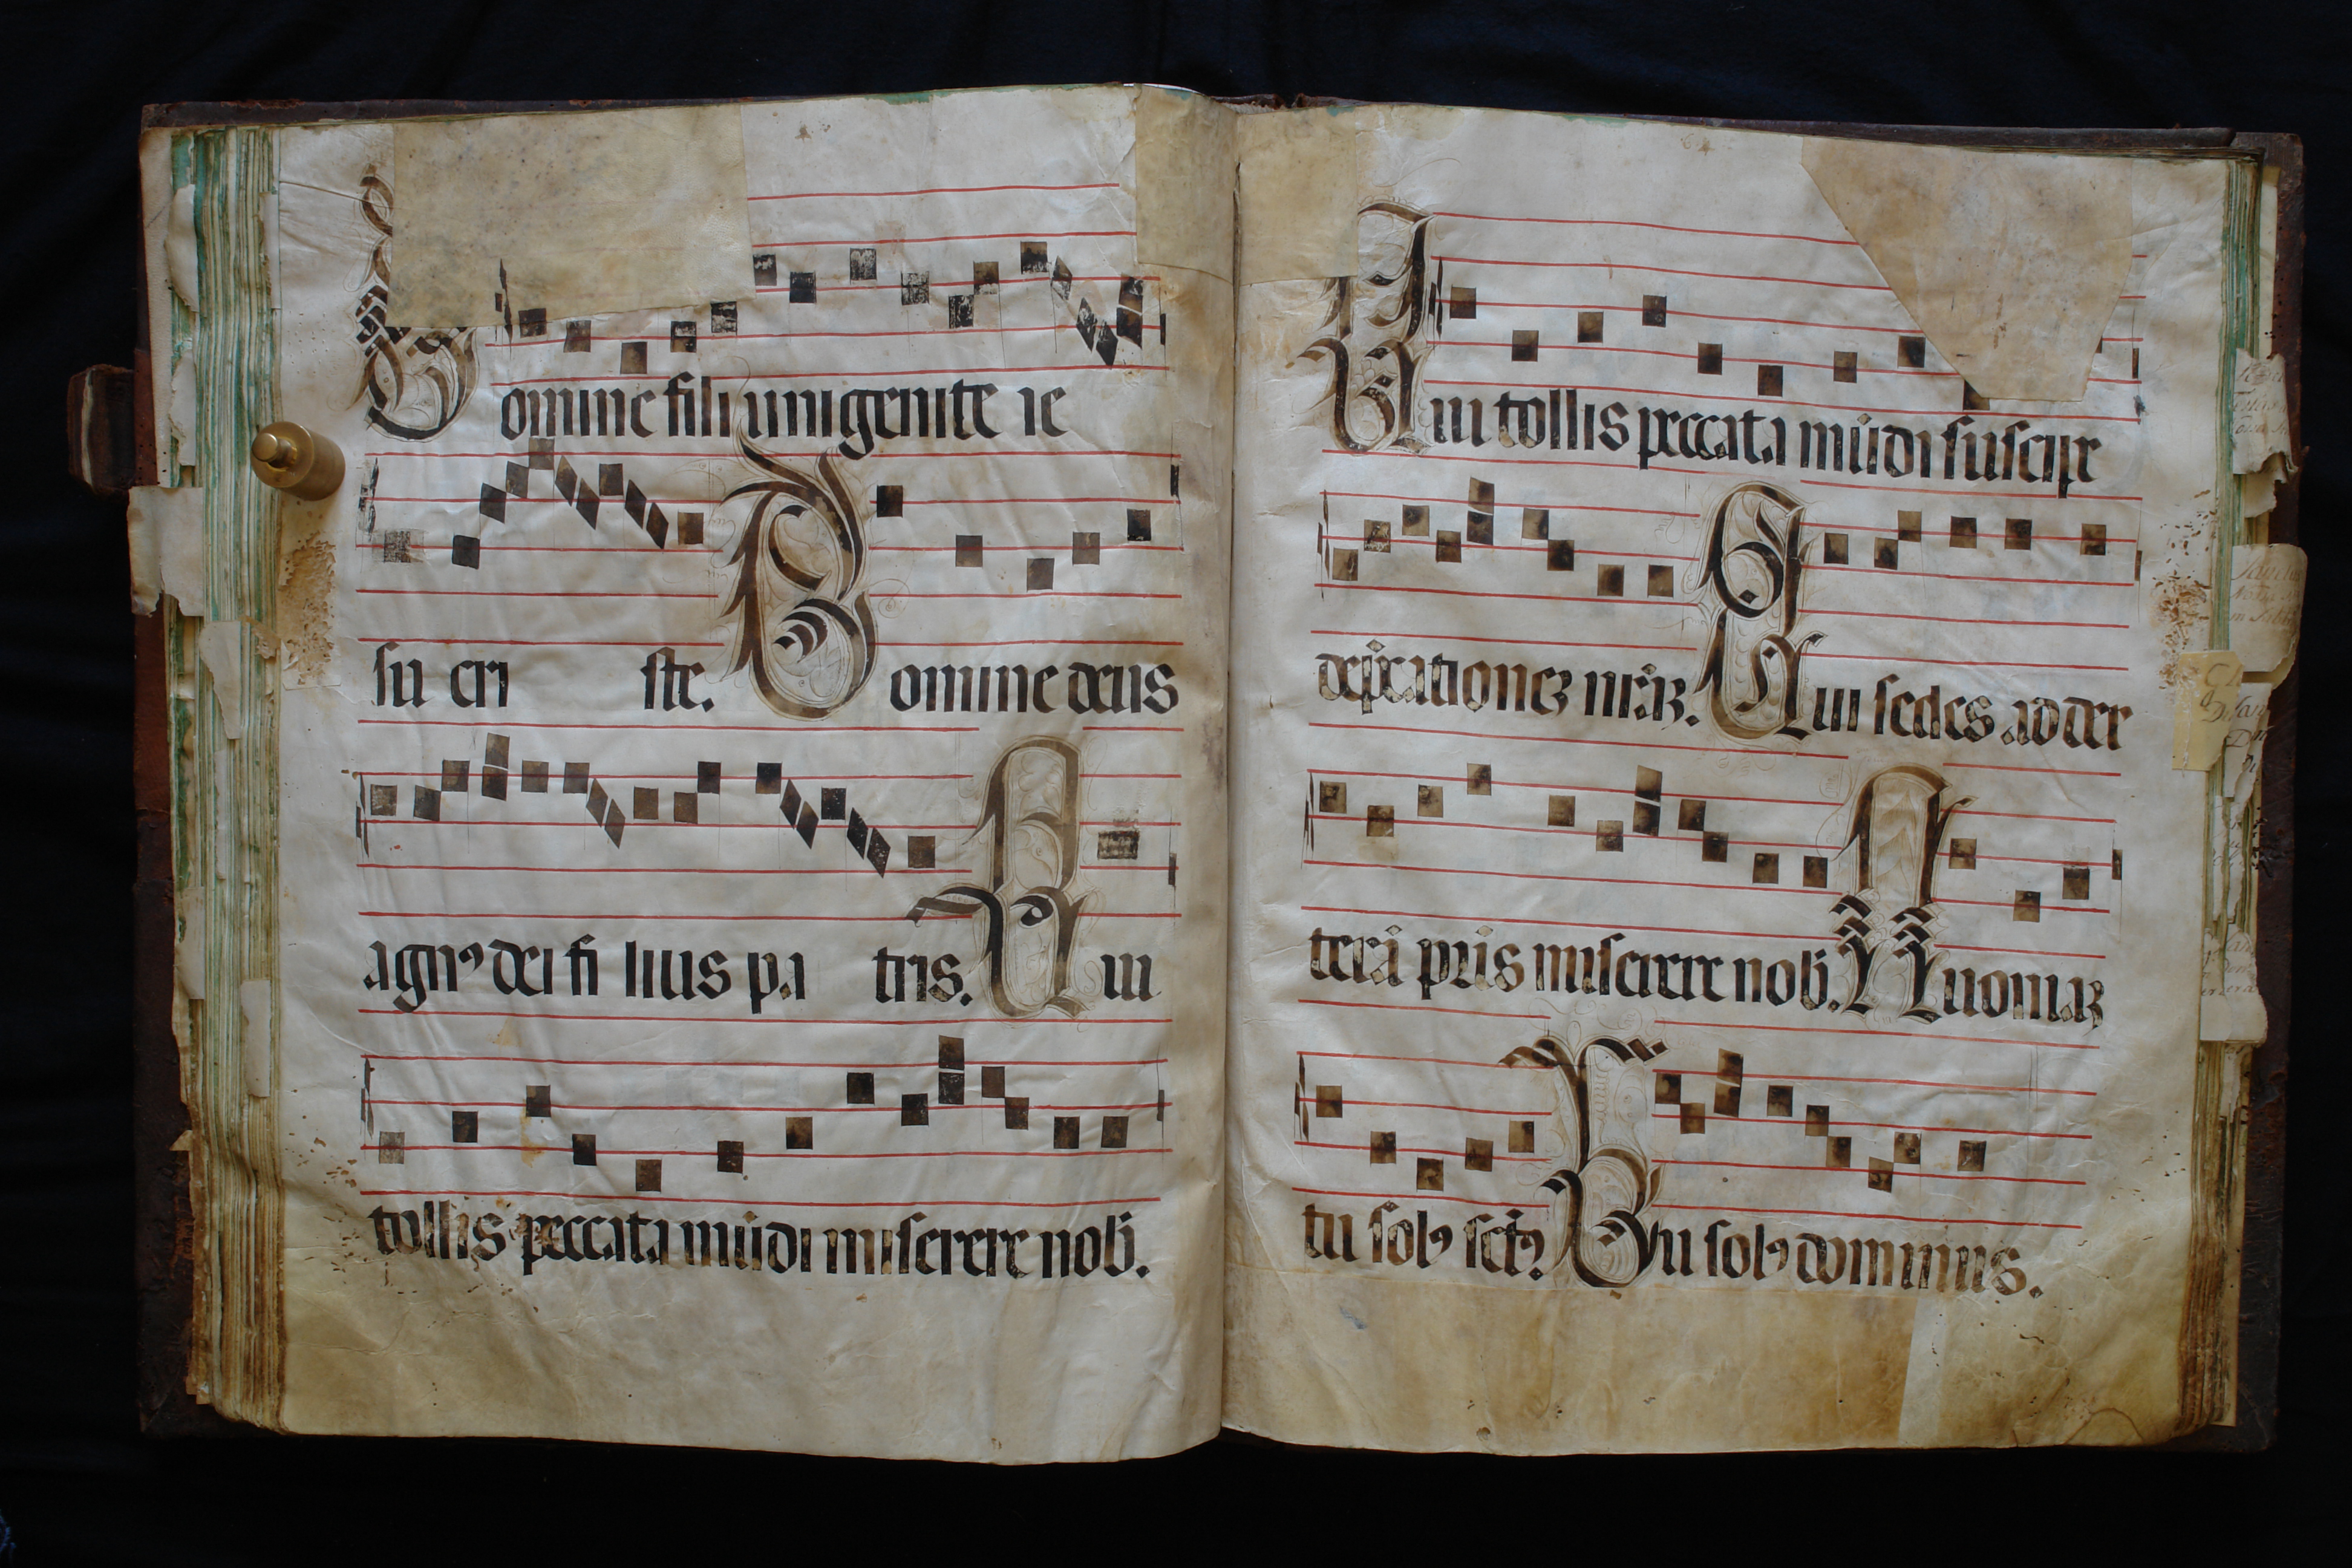 Domine fili unigenite ie
su cri ste. Domine deus
agnꝰ dei fi lius pa tris. Qui
tollis peccata mūdi miserere nob̄.
Qui tollis peccata mūdi suscipe
dep̄cationeꝫ nr̄aꝫ. Qui sedes ad dex
terā pr̄is miserere nob̄. Quoniaꝫ
tu solꝰ sctꝰ. Tu solꝰ dominus.